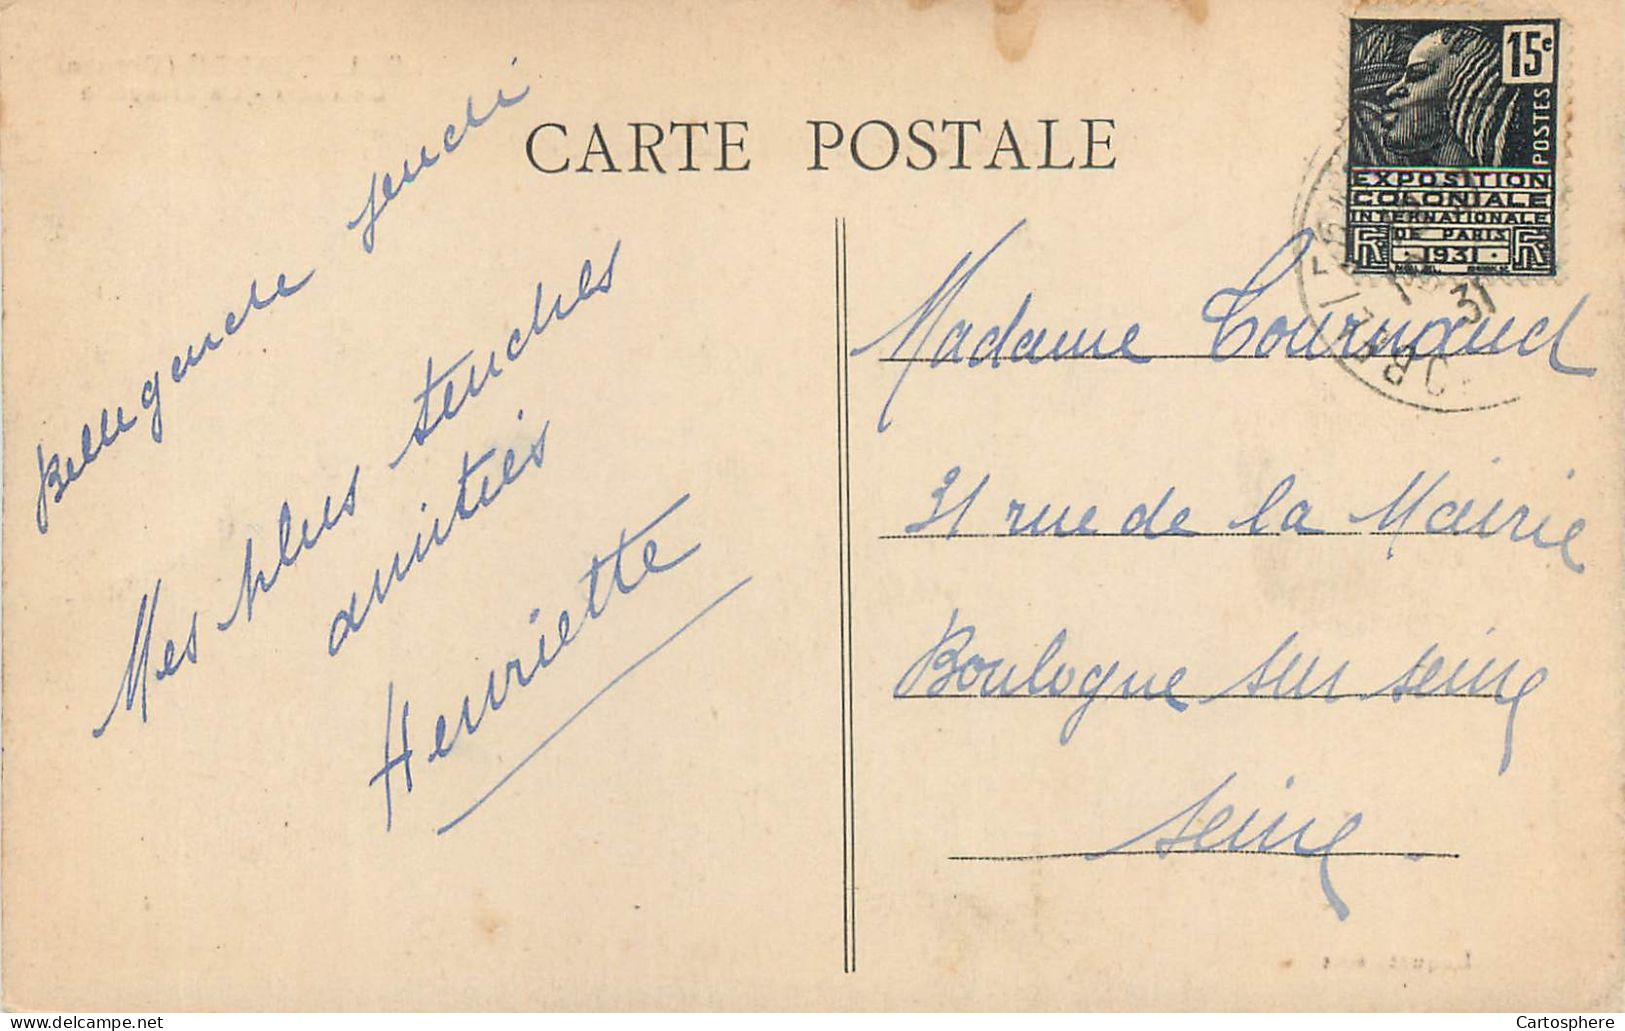 CARTE POSTALE
15c
POSTES
EXPOSITION
COLONIALE
INTERNATIONALE
DE PARIS
1931
RF RF
31
jeudi
Mes plus tendres
amitiés
Henriette
Madame Tournaud
31 rue de la Mairie
Boulogne sur Seine
Seine.
Cartosphere